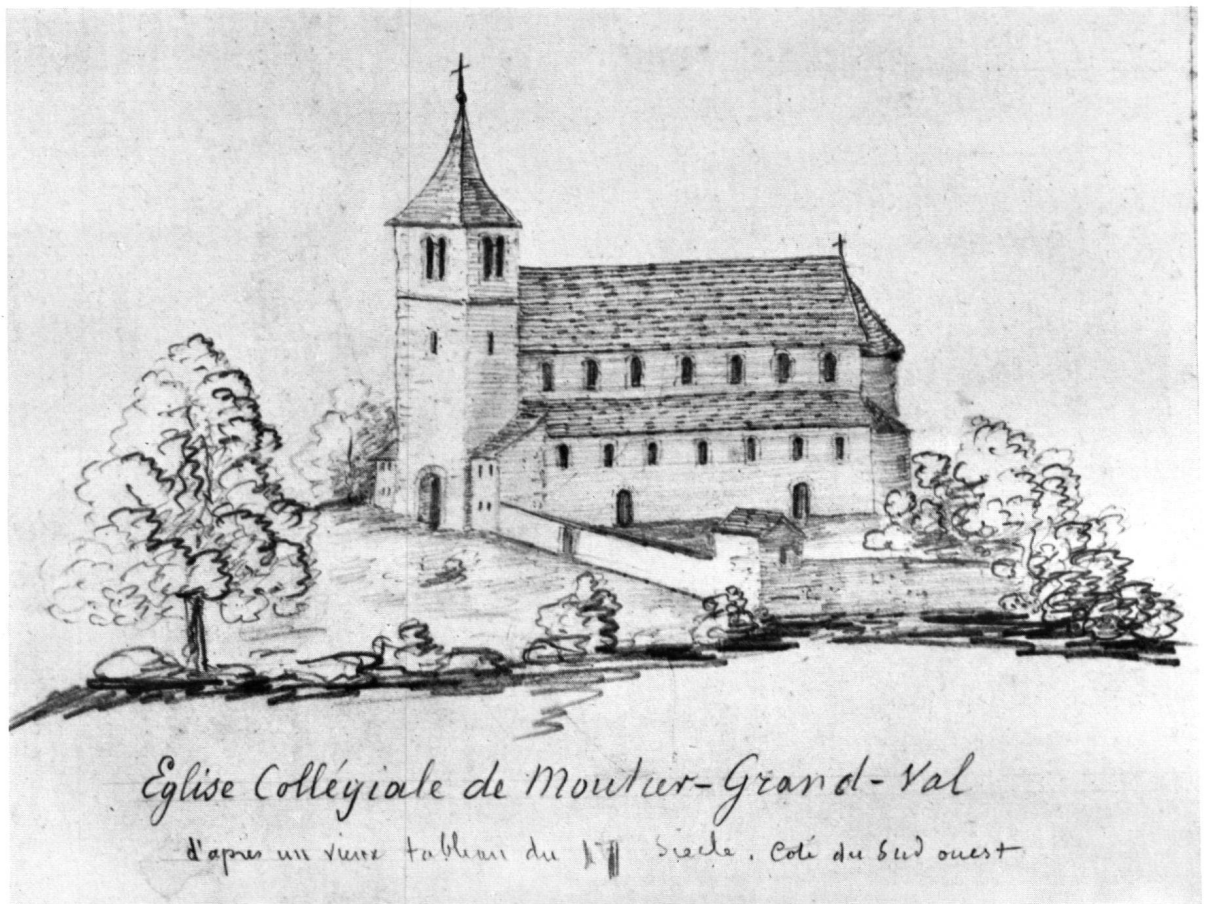 Eglise Collégiale de Moutier-Grand-Val
d'apres un vieux tableau du Siecle. Coté du Sud ouest